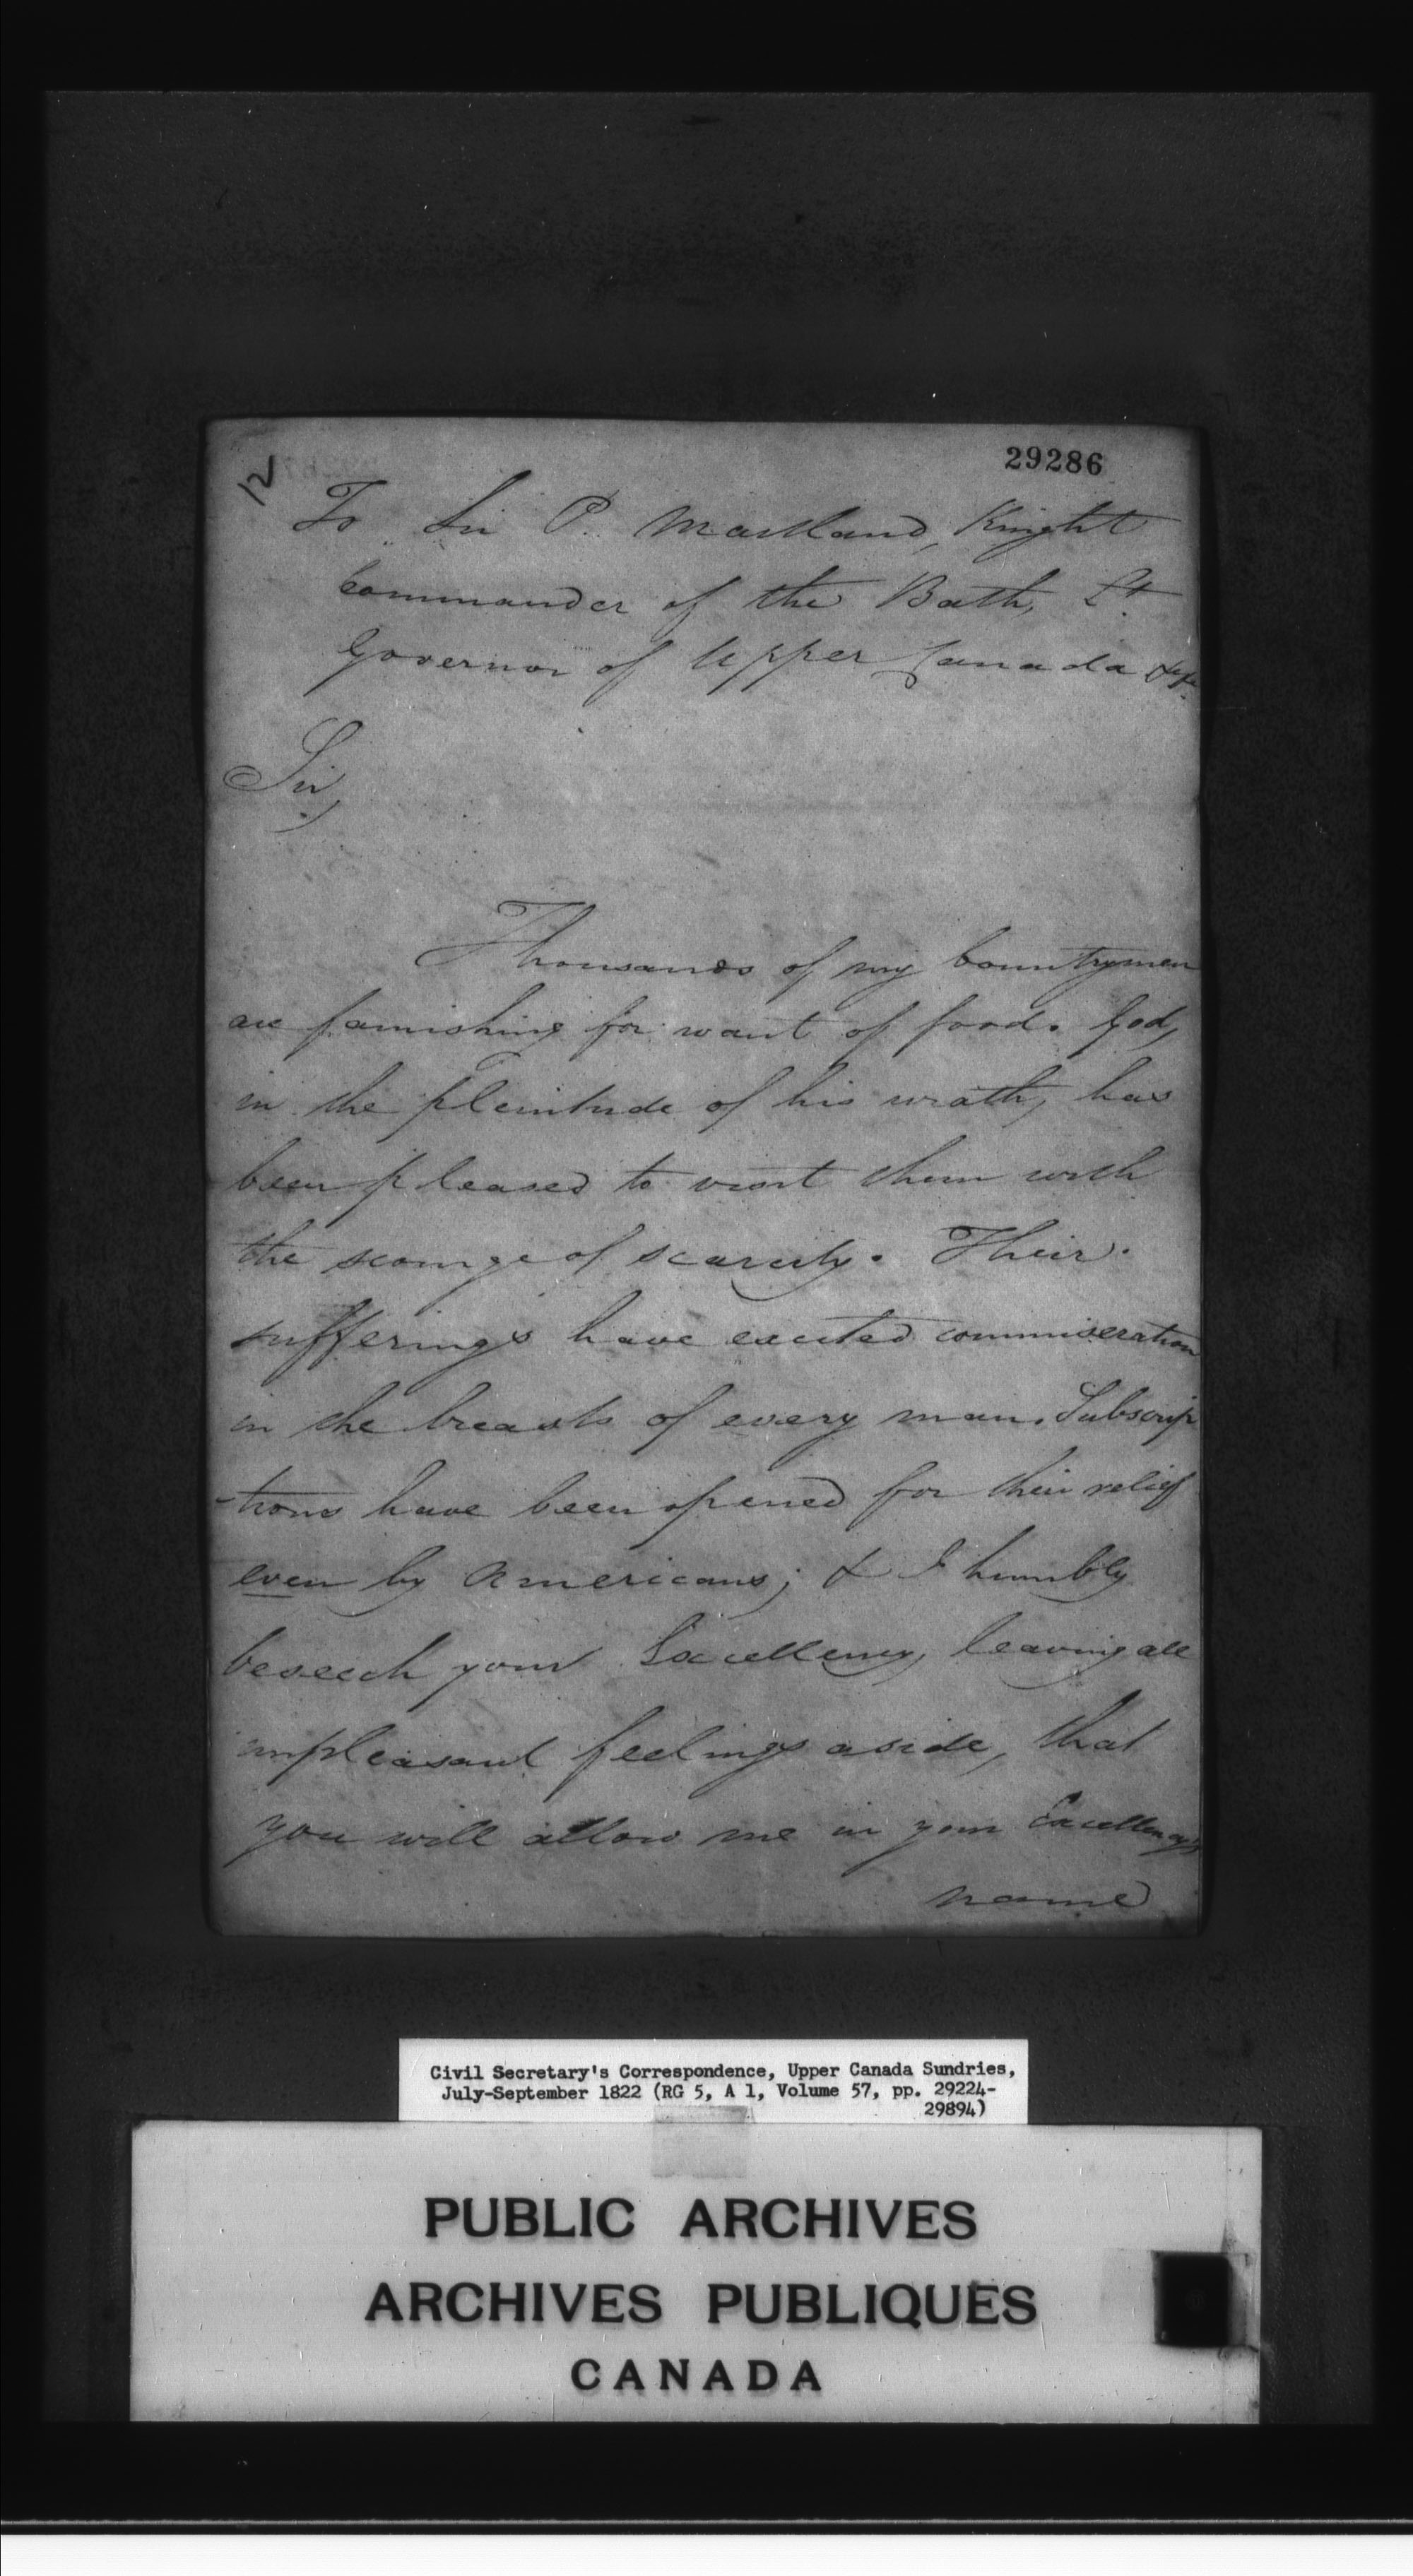 12
29286
To Sir P. Maitland, Knight
Commander of the Bath, Lt.
Governor of Upper Canada &c &c.
Sir,
Thousands of my Countrymen
are famishing for want of food. God,
in the plenitude of his wrath, has
been pleased to visit them with
the scourge of scarcity. Their
sufferings have excited commiseration
in the breasts of every man. Subscrip
-tions have been opened for their relief
even by Americans; & I humbly
beseech your Excellency, leaving all
unpleasant feelings aside, that
you will allow me in your Excellency's
name
Civil Secretary's Correspondence, Upper Canada Sundries,
July-September 1822 (RG 5, A 1, Volume 57, pp. 29224-
29894)
PUBLIC ARCHIVES
ARCHIVES PUBLIQUES
CANADA